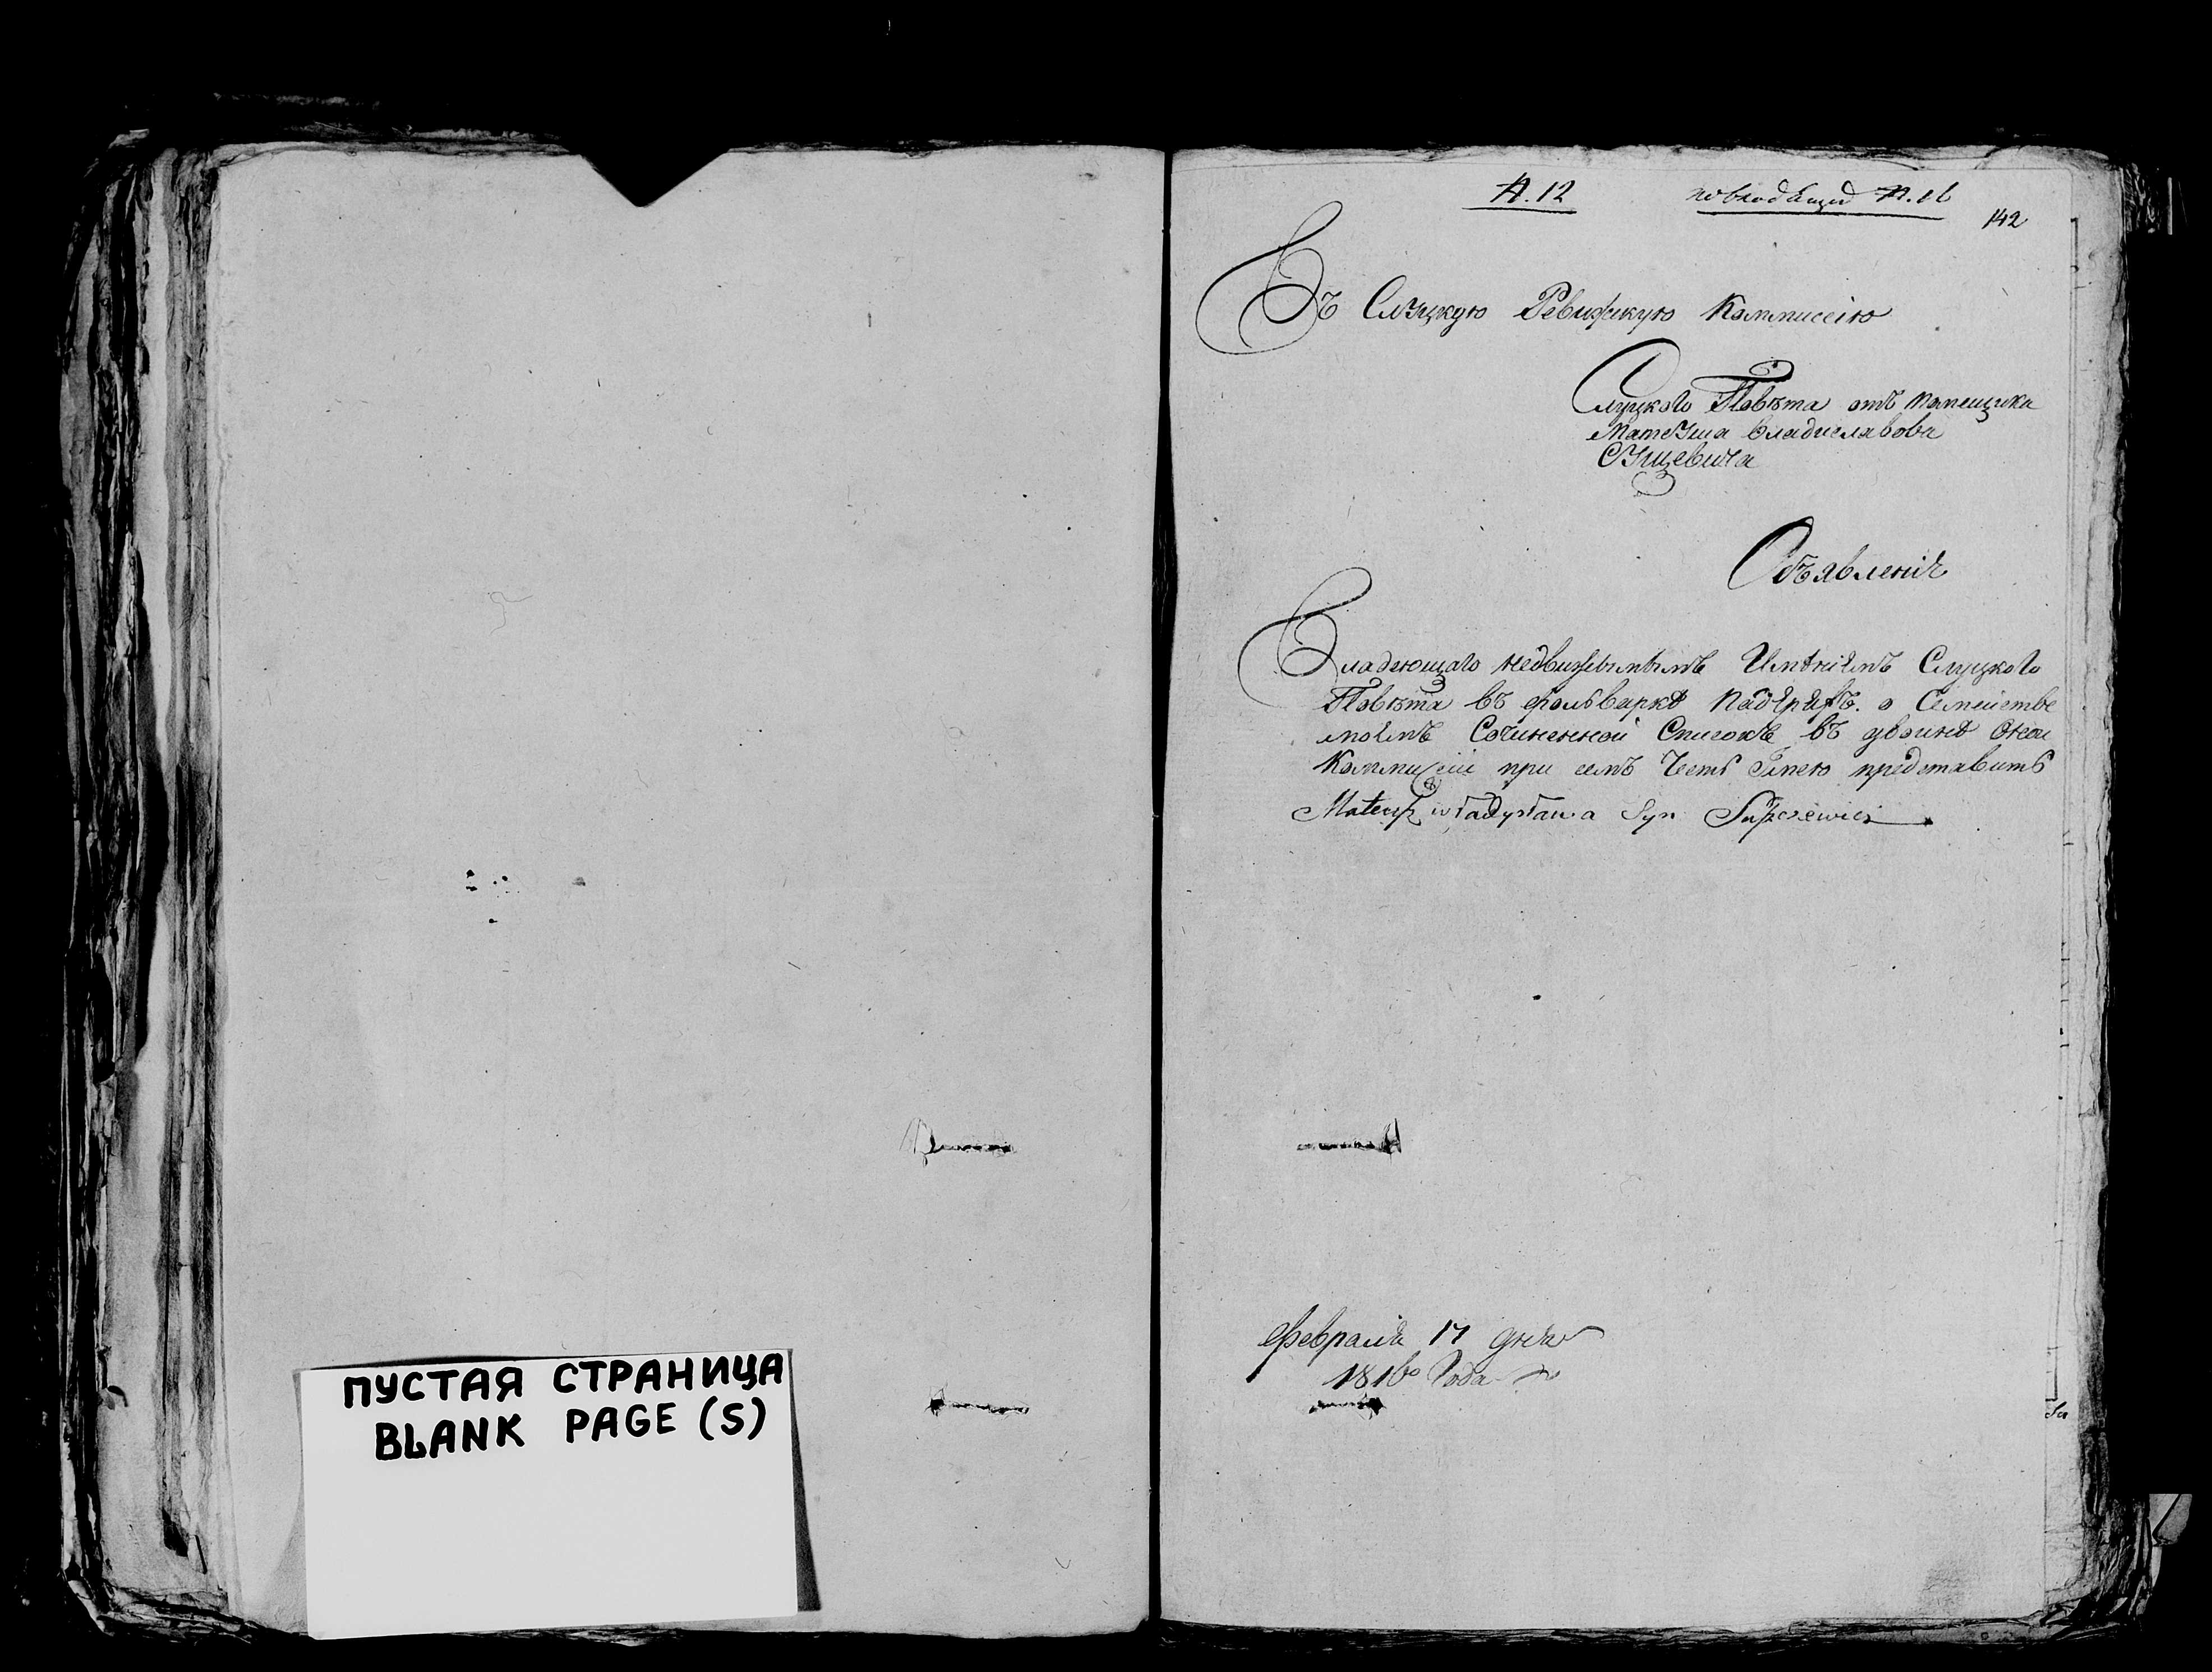 ПУСТАЯ СТРАНИЦА
BLANK PAGE (S)
№. 12
142
Въ Слуцкую Ревизскую Коммиссію
Слуцкого Повѣта отъ помещика
Матеуша Владиславова
Объявленіе
Владеющаго недвижимымъ Имѣніемъ Слуцкого
Повѣта въ фольварке о Семействе
моемъ Сочиненной Списокъ въ двоине Оной
Коммисіи при семъ Честь Имею представить
Mateusz Władysława Syn
Февраля 17 дня
1816 Года